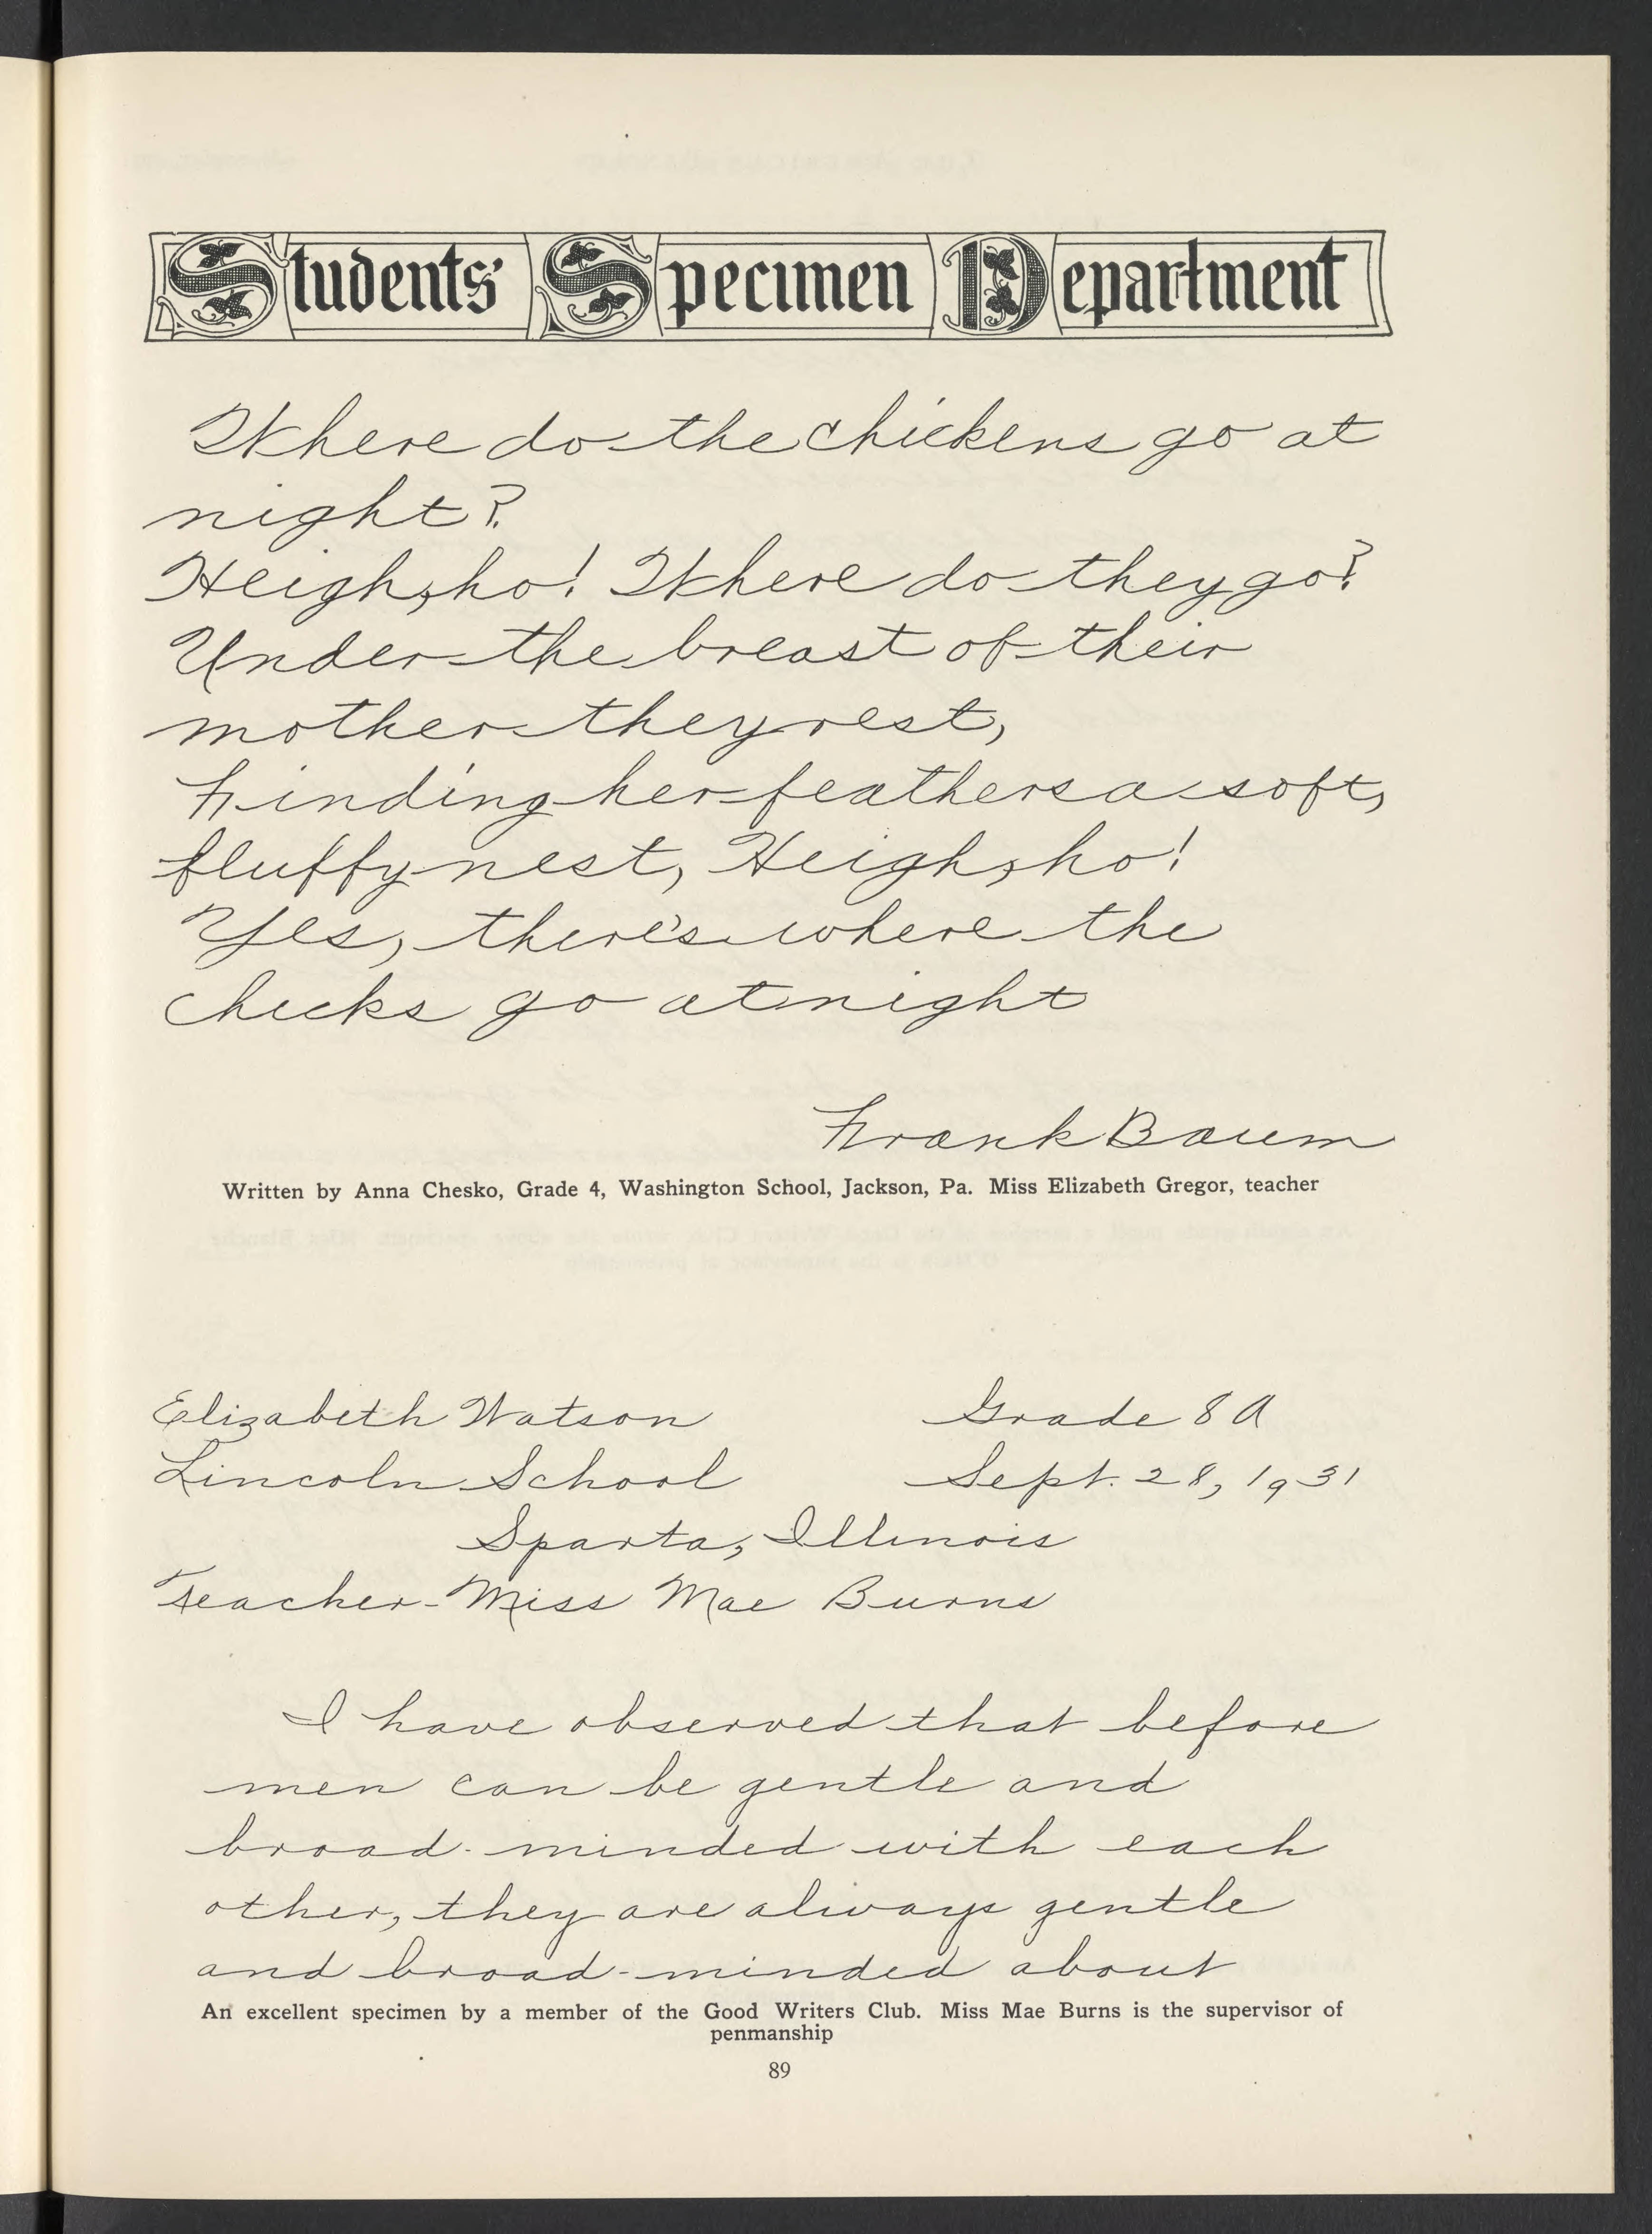 Students' Specimen Department
Where do the chickens go at
night?
Heigh, ho! Where do they go?
Under the breast of their
mother they rest,
Finding her feathers a soft,
fluffy nest, Heigh, ho!
Yes, there's where the
chicks go at night
Frank Baum
Written by Anna Chesko, Grade 4, Washington School, Jackson, Pa. Miss Elizabeth Gregor, teacher
Elizabeth Watson Grade 8A
Lincoln School Sept. 28, 1931
Sparta, Illinois
Teacher- Miss Mae Burns
I have observed that before
men can be gentle and
broad-minded with each
other, they are always gentle
and broad-minded about
An excellent specimen by a member of the Good Writers Club. Miss Mae Burns is the supervisor of
penmanship
89